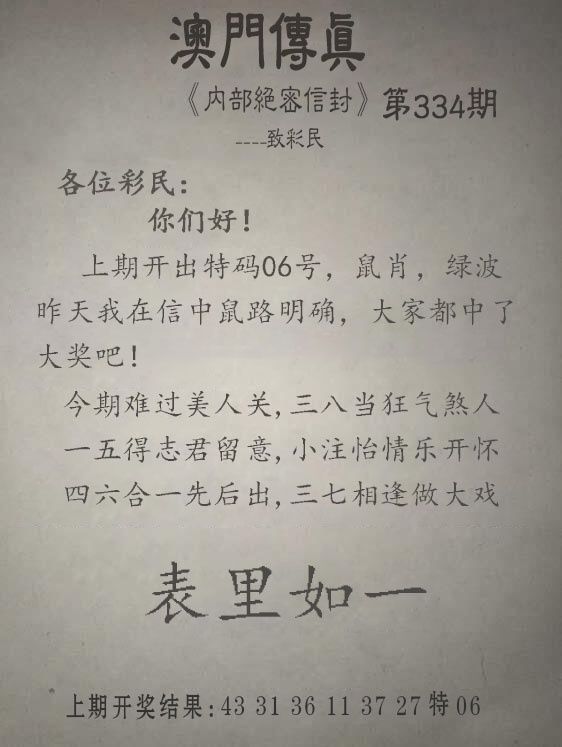 澳門傳眞
《内部絕密信封》第334期
----致彩民
各位彩民：
你们好！
上期开出特码06号，鼠肖，绿波
昨天我在信中鼠路明确，大家都中了
大奖吧！
今期难过美人关,三八当狂气煞人
一五得志君留意,小注怡情乐开怀
四六合一先后出,三七相逢做大戏
表里如一
上期开奖结果:43 31 36 11 37 27 特 06